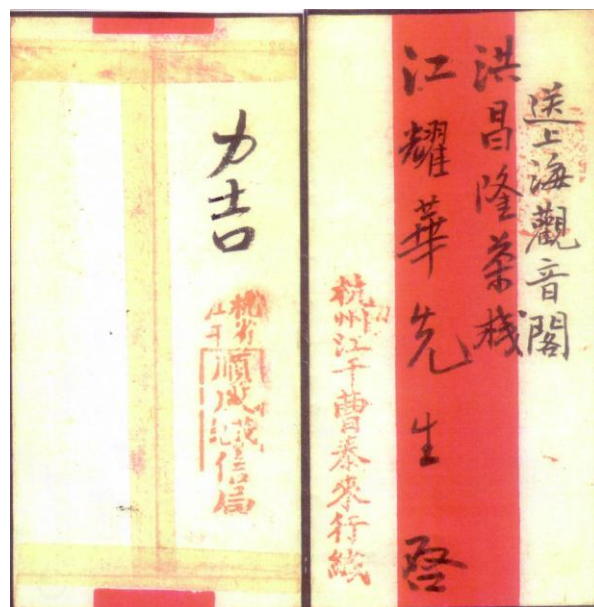 送上海觀音閣
洪昌隆茶棧
江耀華先生啓
杭州江干曹泰來行緘
力吉
杭省
江干
信局